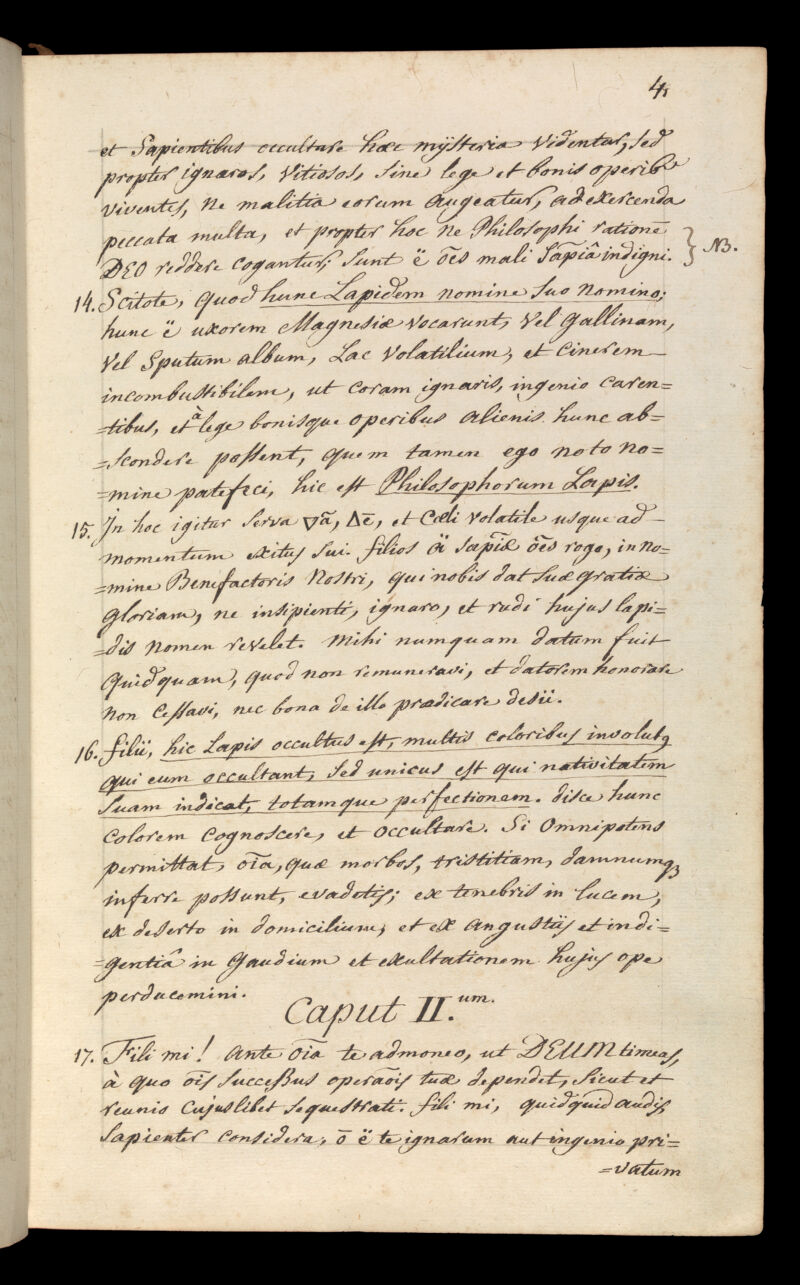 4
et Sapientibus occultare hæc mÿsteria videntur, sed
propter ignaros, vitiosos, sine lege et bonis operib9
viventes, ne malitia eorum augeatur, ad exercenda
peccata multa, et propter hoc ne Philosophi rationē
DEO reddere cogantur; sunt ë ōes mali Sap̄iâ indigni. } NB.
14. Scitote, quod hunc Lapidem nomine suo nomino;
hunc ë uxorem Magnesiæ vocarunt, vel Gallinam,
vel Sputum album, Lac volatilium, et Cinerem
incombustibilem, ut coram ignaris, ingenio caren=
=tibus, et à lege bonisque operibus alienis hunc ab=
=scondere possent, quem tamen ego noto no=
=mine patefeci, hic est Philosophorum Lapis.
15. In hoc igitur serva 🜄ā, 🜂ē, et Cœli volatile usque ad
momentum exitus sui. filios ä̈ sap̄iæ ōes rogo, in no=
=mine Benefactoris Nostri, qui nobis dat suæ gratiæ
gloriam, ne insipienti, ignaro, et rudi hujus lapi=
=dis nomen revelet. Mihi numquam datum fuit
quidquam, quod non remuneravi, et datorem honorare
non cessavi, nec bona de illo prædicare desii.
16. filii, hic Lapis occultus est, multis coloribus involut9
qui eum occultant, sed unicus est qui nativitatem
suam indicat, totamque perfectionem. disce hunc
colorem cognoscere, et occultare. Si Omnipotens
permittat, oīa, quæ morbos, tristitiam, damnumq3
inferre possunt, evadetis; ex tenebris in lucem,
ex deserto in domicilium, et ex angustiis et indi=
=gentiâ in Gaudium et exultationem hujus ope
perducemini.
Caput II.um.
17. Fili mi! ante oīa te admoneo, ut DEUM timeas,
à quo oīs successus operāōis tuæ dependet, sicut et
reunio cujuslibet sequestrati. fili mi, quidquid audis,
sapienter considera, ō ë te ignarum aut ingenio pri=
=vatum